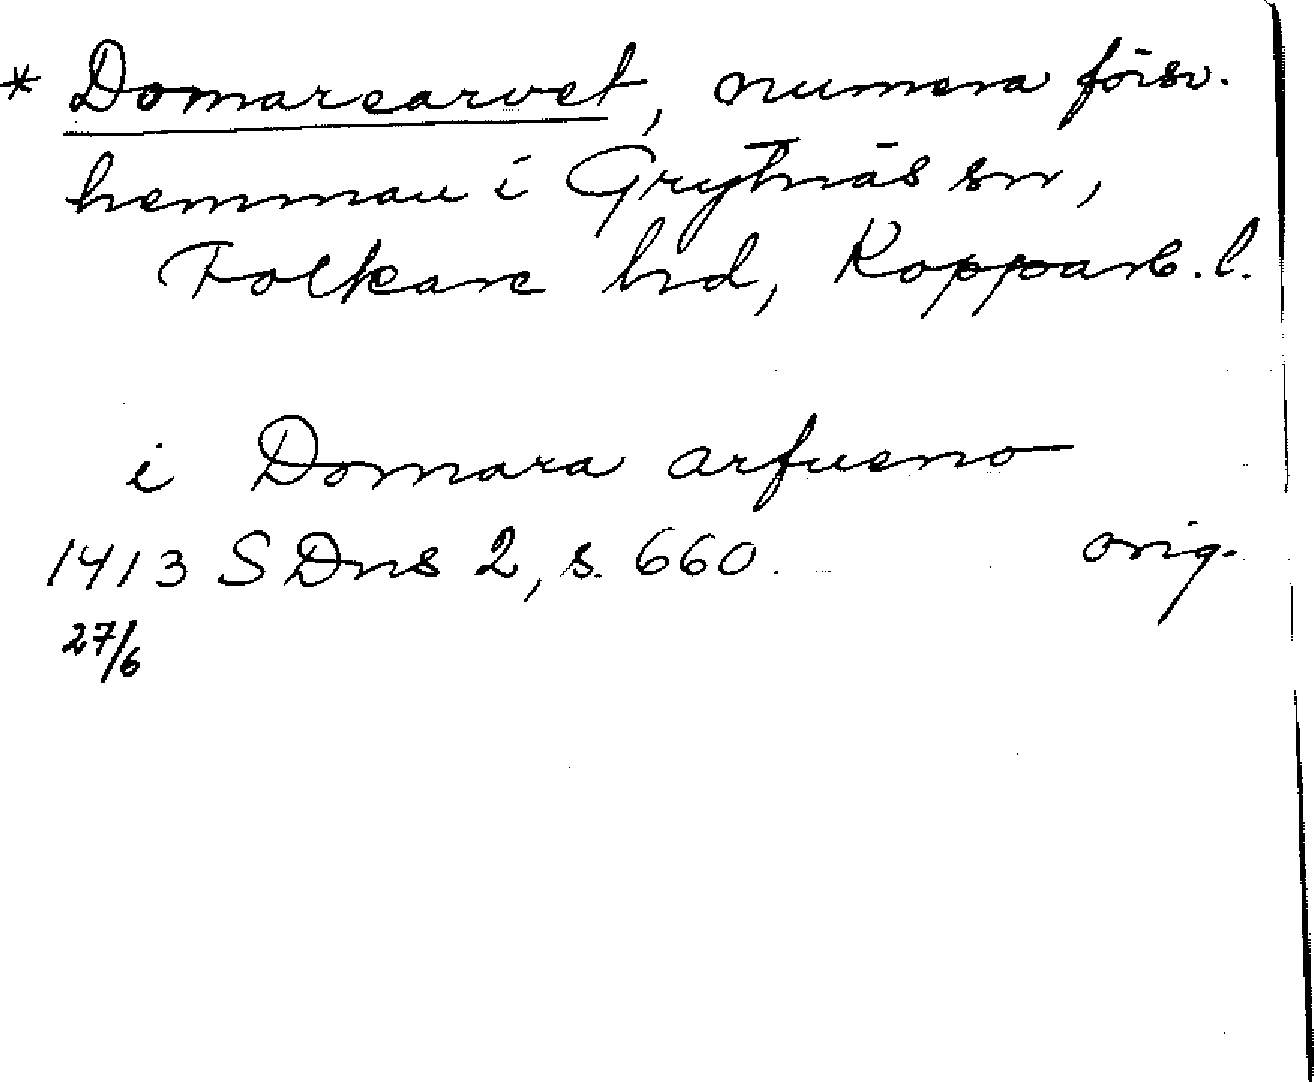 * Domarearvet, numera försv.
hemman i Grytnäs sn,
Folkare hd, Kopparb. l.
i Domara arfueno
1413 SDns 2, s. 660. orig.
27/6